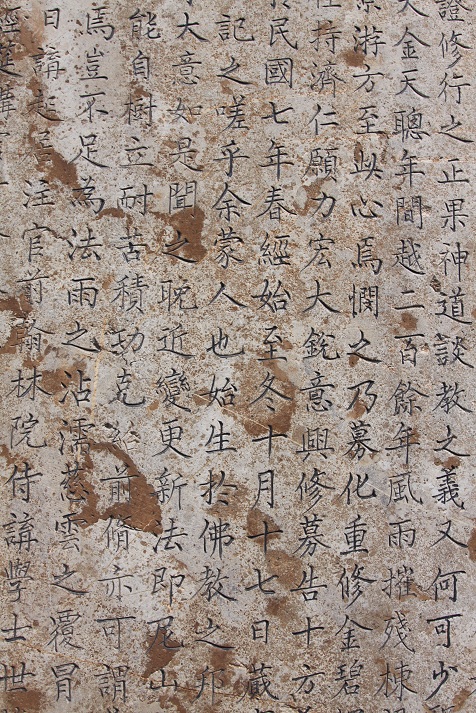 證修行之正果神道談教之義又何可少
大金天聰年間越二百餘年風雨摧殘棟
游方至此心焉憫之乃募化重修金碧
住持濟仁願力宏大銳意興修募告十方
民國七年春經始至冬十月十七日蕆
記之嗟乎余蒙人也始生於佛教之邦
大意如是聞之耽近變更新法即尼山
能自樹立耐苦積功克紹前脩亦可謂
焉豈不足為法雨之沾濡慈雲之覆冒
日講起居注官前翰林院侍講學士世
經筵講